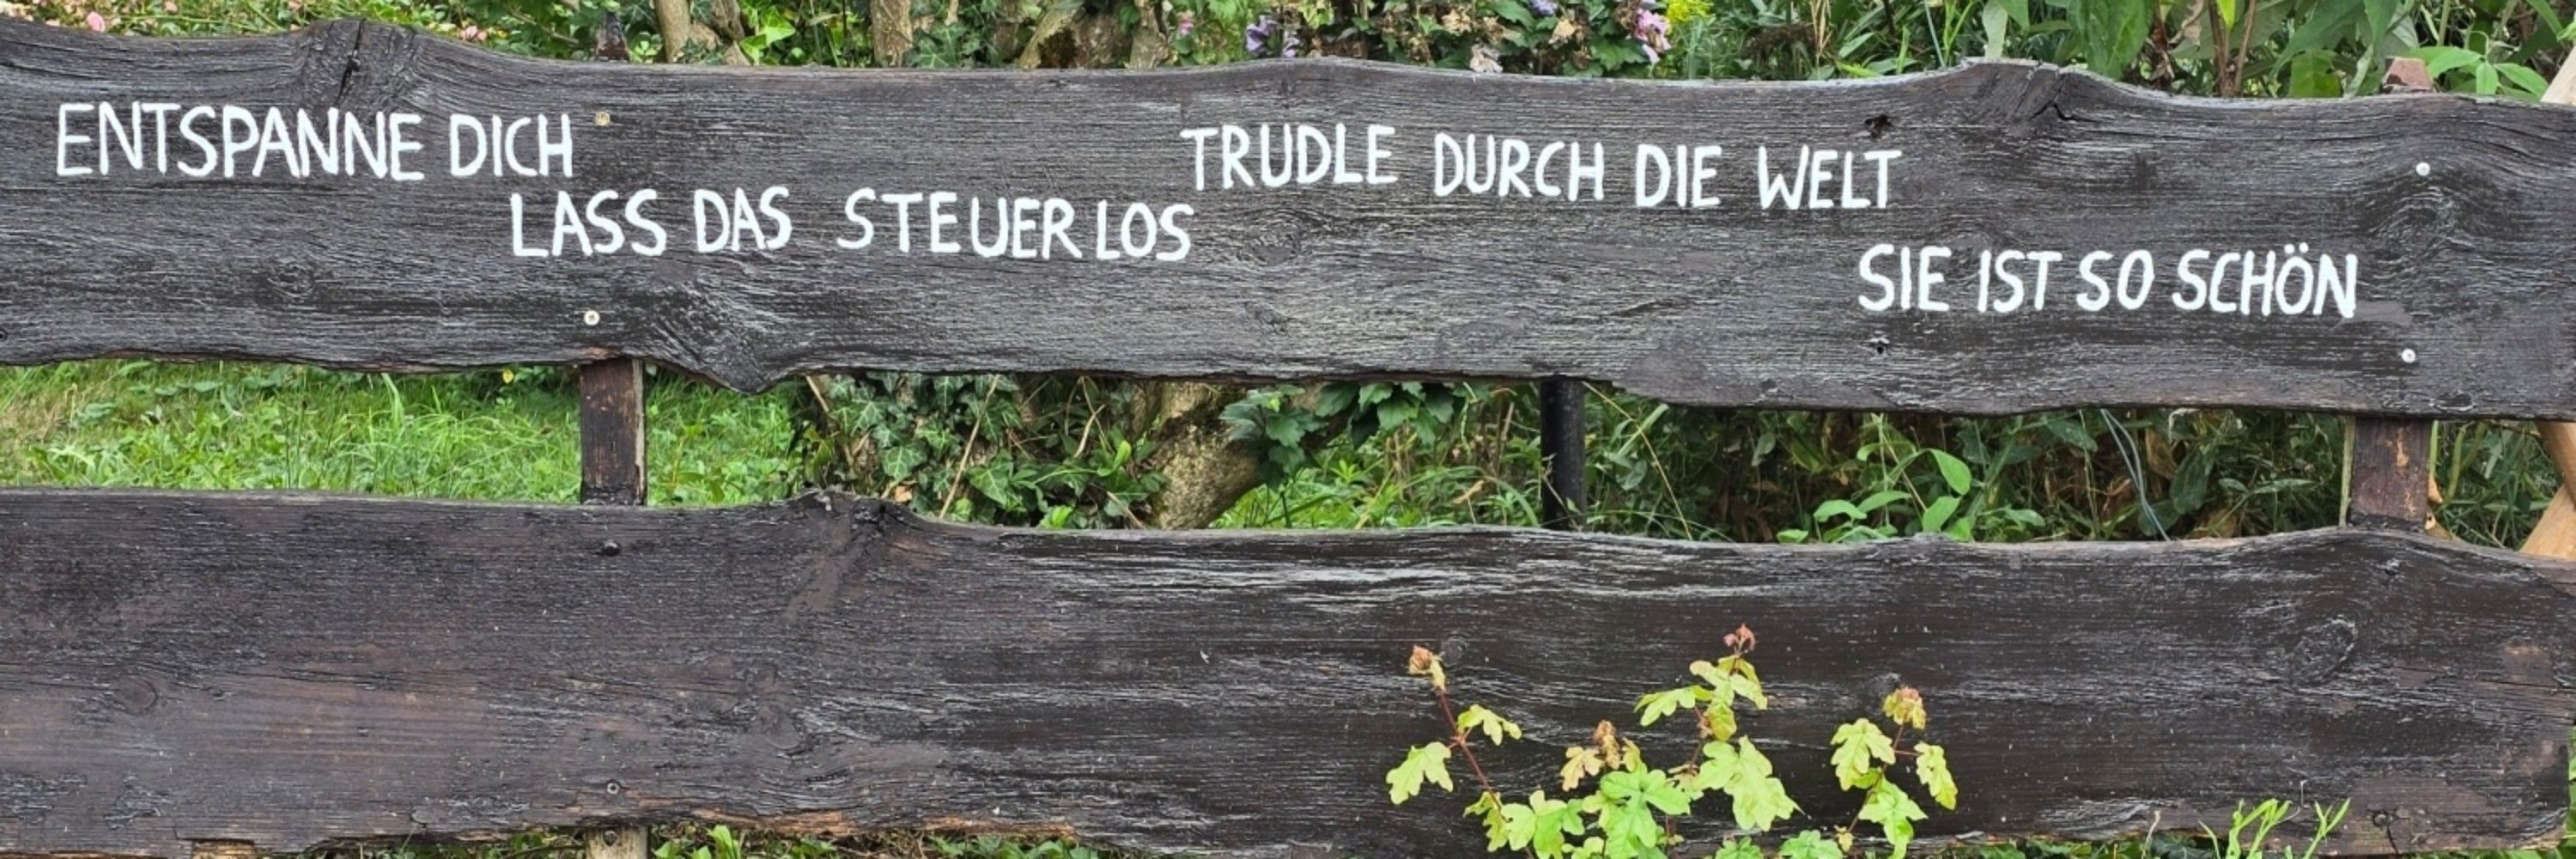 ENTSPANNE DICH
LASS DAS STEUER LOS
TRUDLE DURCH DIE WELT
SIE IST SO SCHÖN